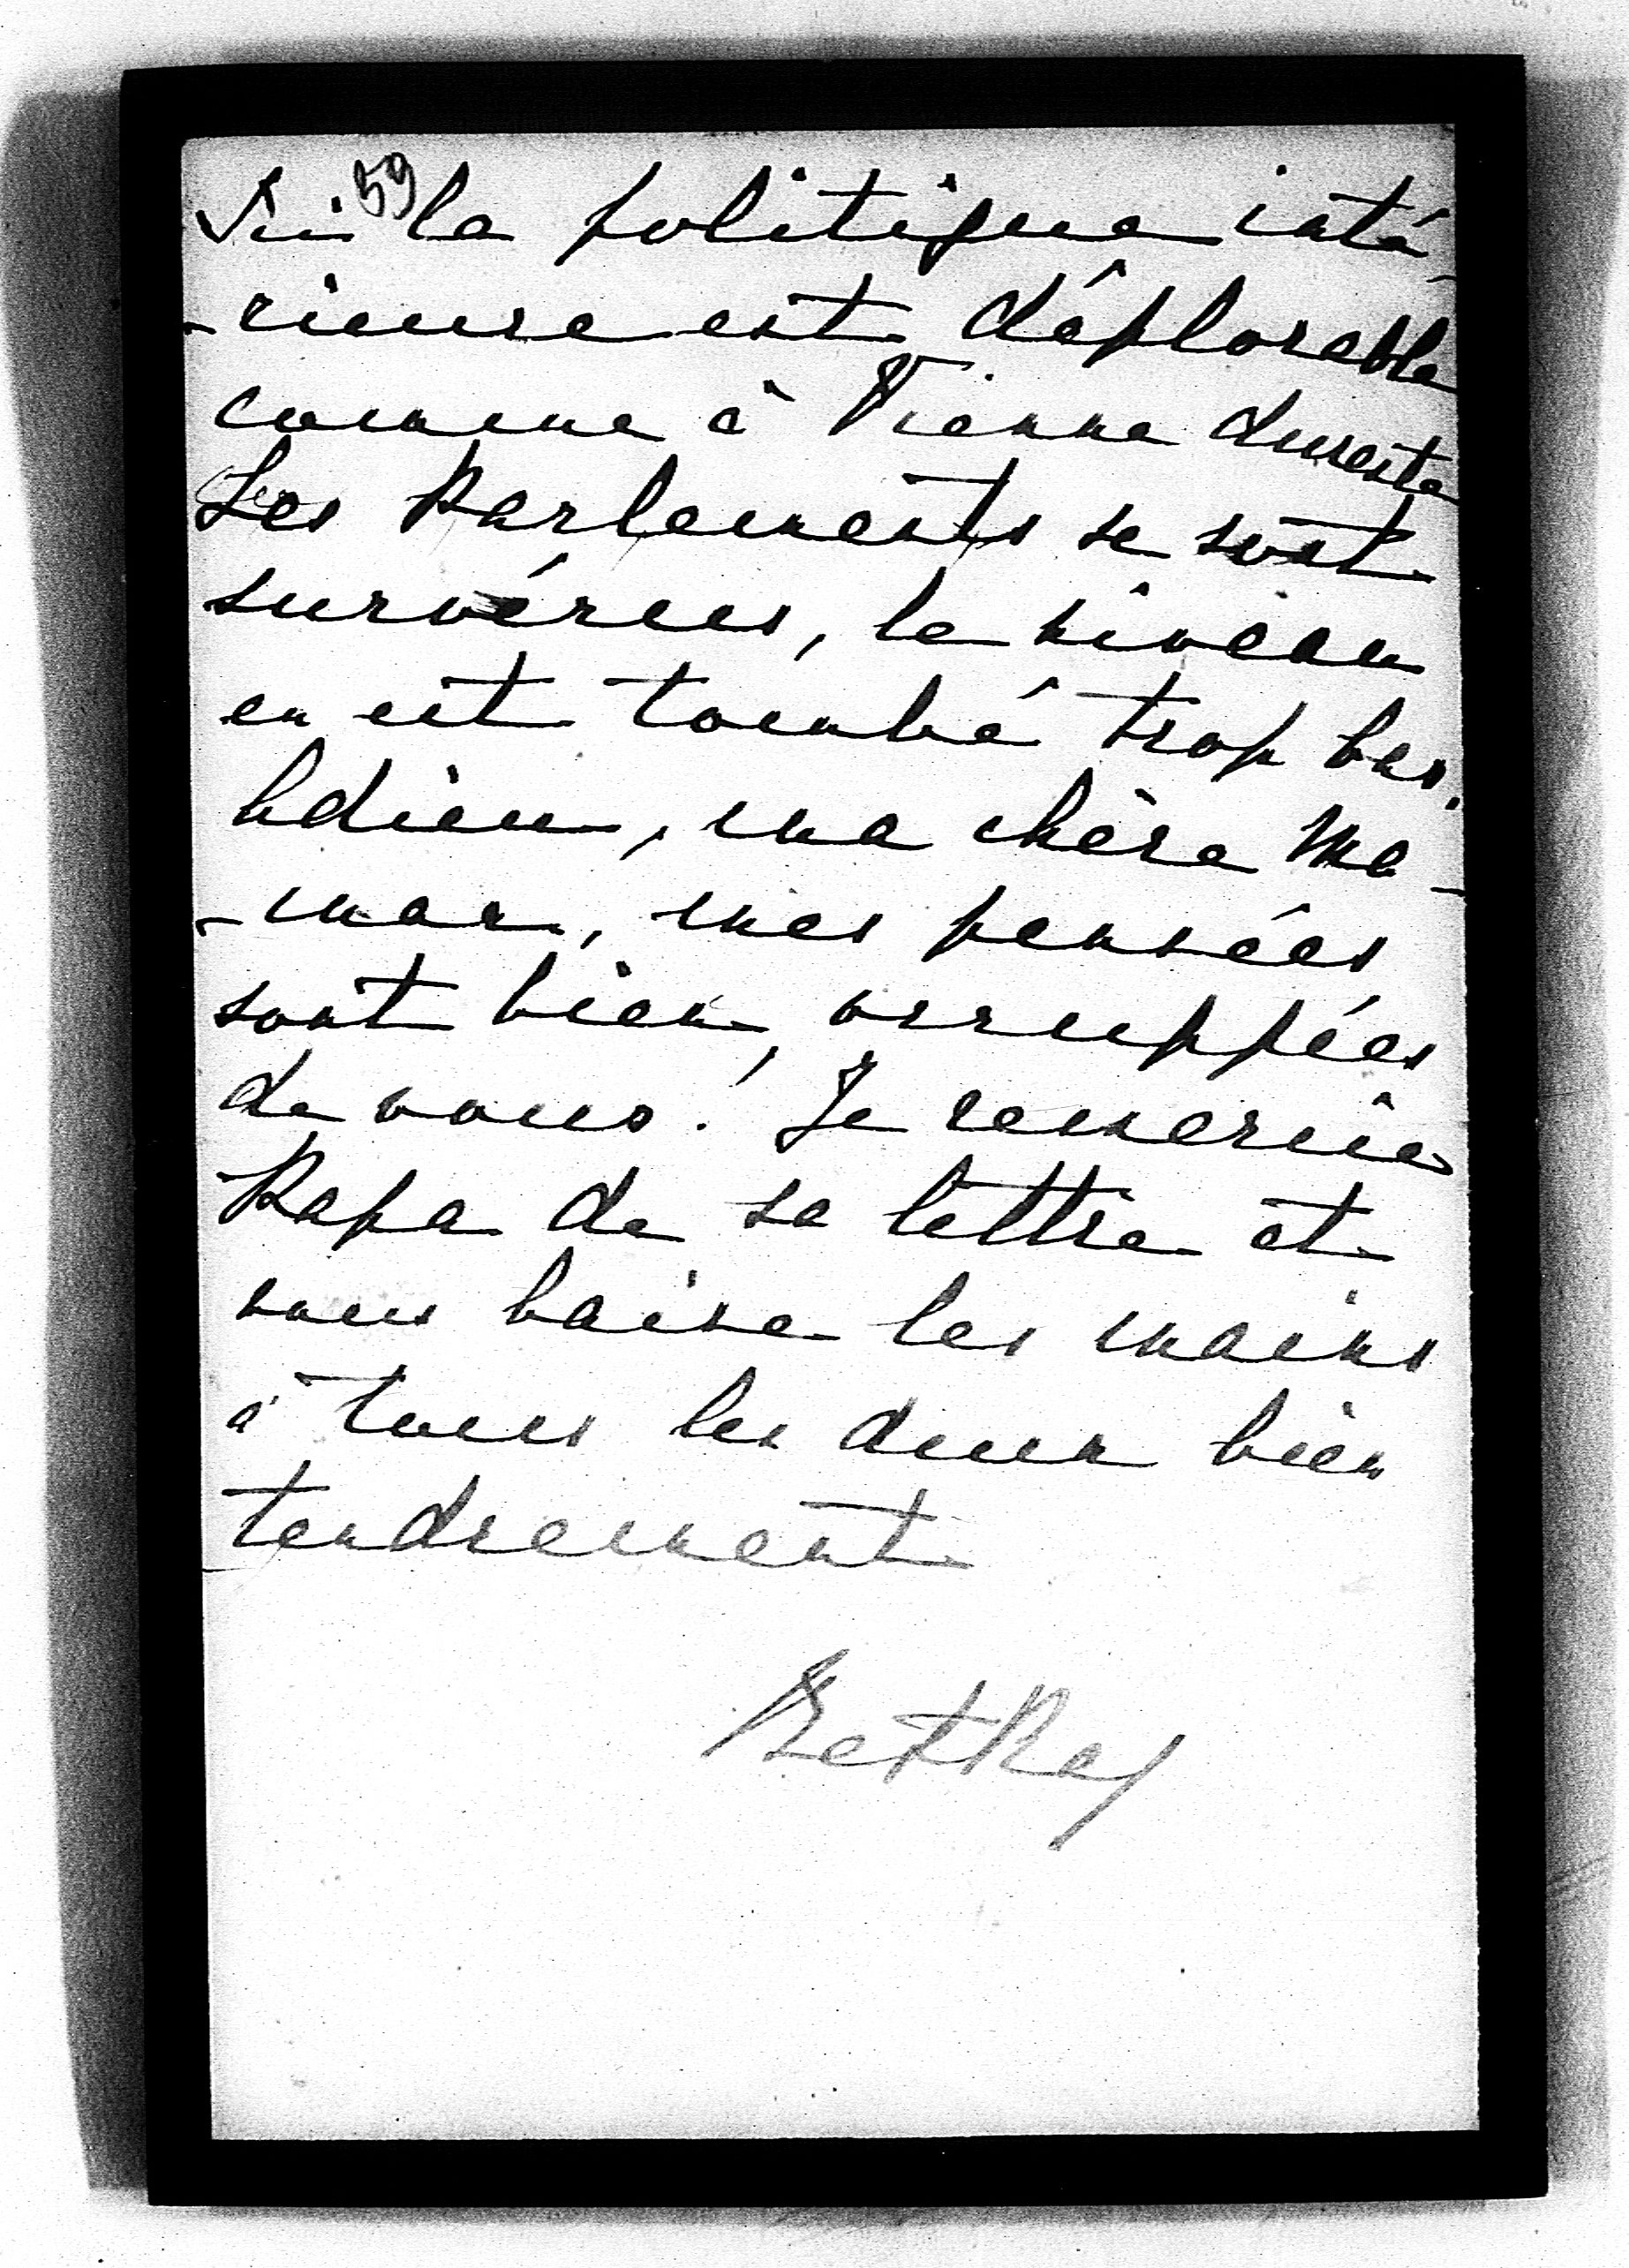 59
Ici la politique inté-
-rieure est déplorable
comme à Vienne dureste
Les Parlements se sont
survécus, le niveau
en est tombé trop bas.
Adieu, ma chère Ma-
-man, mes pensées
sont bien occuppées
de vous! Je remercie
Papa de sa lettre et
vous baise les mains
à tous les deux bien
tendrement